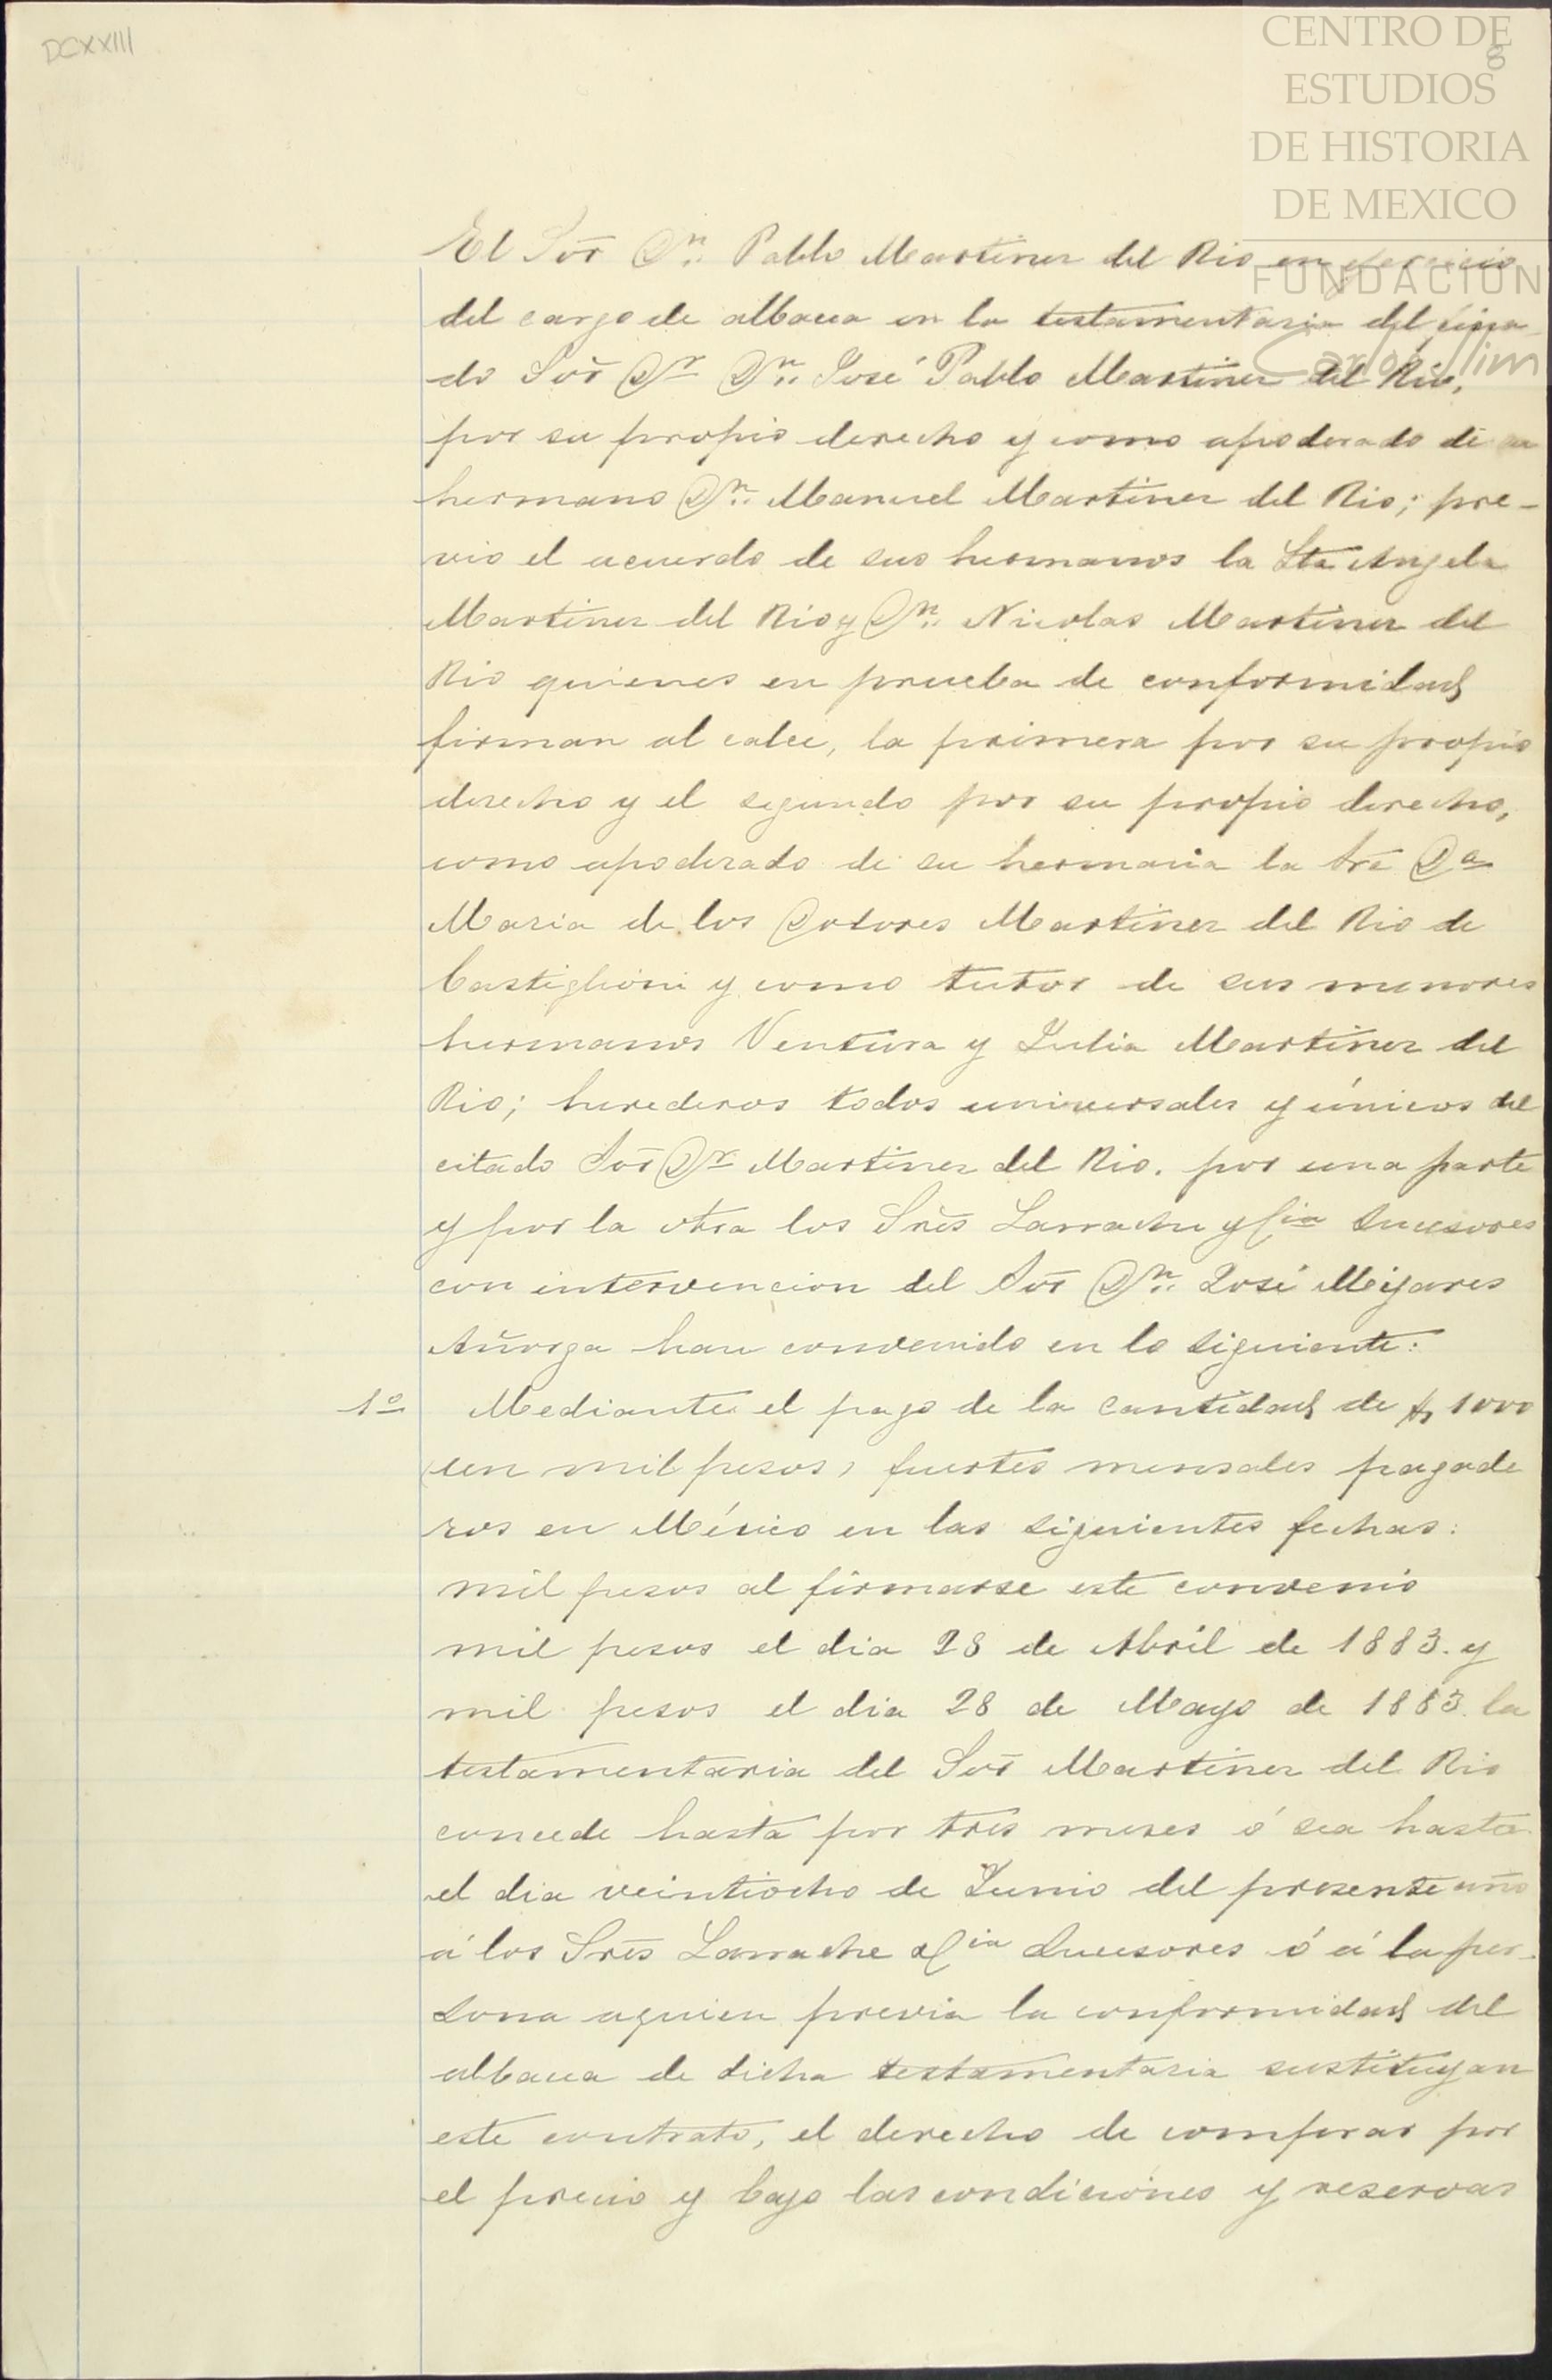 DCXXIII
8
CENTRO DE
ESTUDIOS
DE HISTORIA
DE MEXICO
FUNDACIÓN
Carlos Slim
El Sor Dn. Pablo Martinez del Rio en ejercicio
del cargo de albacea en la testamentaria del fina-
do Sor Dr Dn. José Pablo Martinez del Rio,
por su propio derecho y como apoderado de su
hermano Dn. Manuel Martinez del Rio; pre-
vio el acuerdo de sus hermanos la Sta Angela
Martinez del Rio y Dn. Nicolas Martinez del
Rio quienes en prueba de conformidad
firman al calce, la primera por su propio
derecho y el segundo por su propio derecho,
como apoderado de su hermana la Sra Da
Maria de los Dolores Martinez del Rio de
Castiglioni y como tutor de sus menores
hermanos Ventura y Julia Martinez del
Rio; herederos todos universales y únicos del
citado Sor Dr Martinez del Rio. por una parte
y por la otra los Sres Larrache y Cia Sucesores
con intervencion del Sor Dn. José Mijares
Añorga han convenido en lo siguiente:
1º Mediante el pago de la cantidad de $ 1000
(un mil pesos) fuertes mensales pagade
ros en México en las siguientes fechas:
mil pesos al firmarse este convenio
mil pesos el dia 28 de Abril de 1883. y
mil pesos el dia 28 de Mayo de 1883. la
testamentaria del Sor Martinez del Rio
concede hasta por tres meses ó sea hasta
el dia veintiocho de Junio del presente año
á los Sres Larrache y Cia Sucesores ó á la per-
sona aquien previa la conformidad del
albacea de dicha testamentaria sustituyan
este contrato, el derecho de comprar por
el precio y bajo las condiciones y reservas